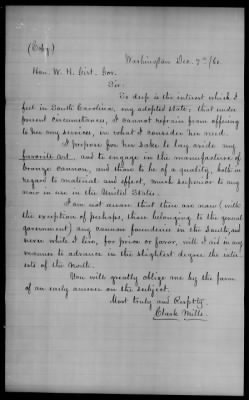 (Copy)
Washington Dec. 7th/60.
Hon. W. H. Gist. Gov.
Sir:
So deep is the interest which I
feel in South Carolina, my adopted state; that under
present circumstances, I cannot refrain from offering
to her my services, in what I consider her need.
I propose for her sake to lay aside my
favorite art, and to engage in the manufacture of
bronze cannon, and those to be of a quality, both in
regard to material and effect, much superior to any
now in use in the United States.
I am not aware that there are now (with
the exception of perhaps, those belonging to the general
government) any cannon founderies in the South, and
never while I live, for price or favor, will I aid in any
manner to advance in the slightest degree the inter-
ests of the North.
You will greatly oblige me by the favor
of an early answer on the subject.
Most truly and Resptly.
Clark Mills.